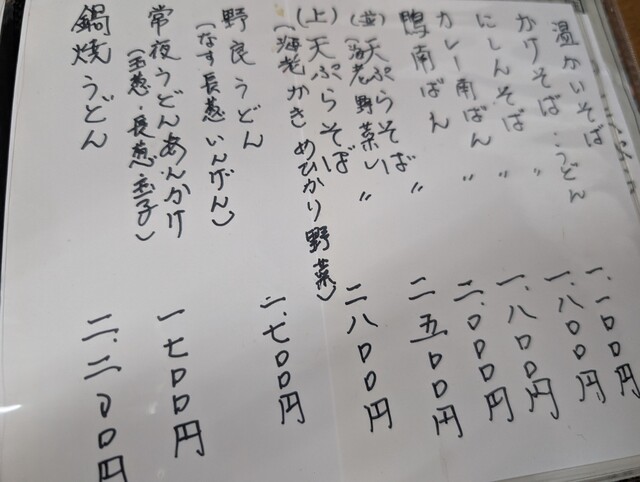 温かいそば
かけそば・うどん 一.一〇〇円
にしんそば 〃 一.八〇〇円
カレー南ばん 〃 一.八〇〇円
鴨南ばん 〃 二.〇〇〇円
(並)天ぷらそば 〃 二五〇〇円
(海老 野菜)
(上)天ぷらそば 〃 二八〇〇円
(海老 かき めひかり 野菜)
野良うどん 一.七〇〇円
(なす 長葱 いんげん)
常夜うどんあんかけ 一七〇〇円
(玉葱・長葱・玉子)
鍋焼うどん 二.二〇〇円